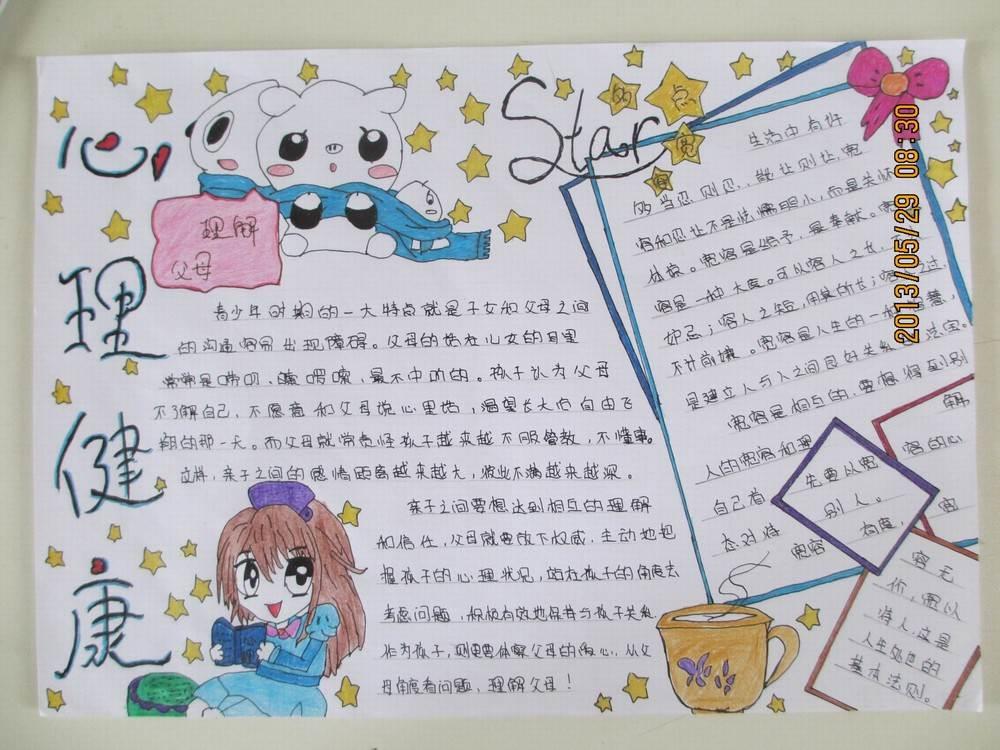 心理健康
Star
多点
宽
容
理解
父母
青少年时期的一大特点就是子女和父母之间
的沟通容易出现障碍。父母的话在儿女的耳里
常常是唠叨、啰嗦，最不中听的。孩子认为父母
不了解自己，不愿意和父母说心里话，渴望长大向自由飞
翔的那一天。而父母就常责怪孩子越来越不服管教，不懂事。
这样，亲子之间的感情距离越来越大，彼此不满越来越深。
亲子之间要想达到相互的理解
和信任，父母就要放下权威，主动地把
握孩子的心理状况，站在孩子的角度去
考虑问题，积极有效地保持与孩子关系。
作为孩子，则更要体察父母的爱心，从父
母角度看问题，理解父母！
生活中有许
多当忍则忍，能让则让。宽
容和忍让不是怯懦胆小，而是关怀
体谅。宽容是给予，是奉献。宽
容是一种大度。可以容人之长，
妒忌；容人之短，用其所长；容 过，
不计前嫌。宽容是人生的一种 慧，
是建立人与人之间良好关系 法宝。
宽容是相互的，要想得到别
人的宽容和理
解
自己首
先要从宽
容的心
态对待
别人。
宽容
有度，
宽
容无
价，宽以
待人，这是
人生处世的
基本法则。
2013/05/29 08:30